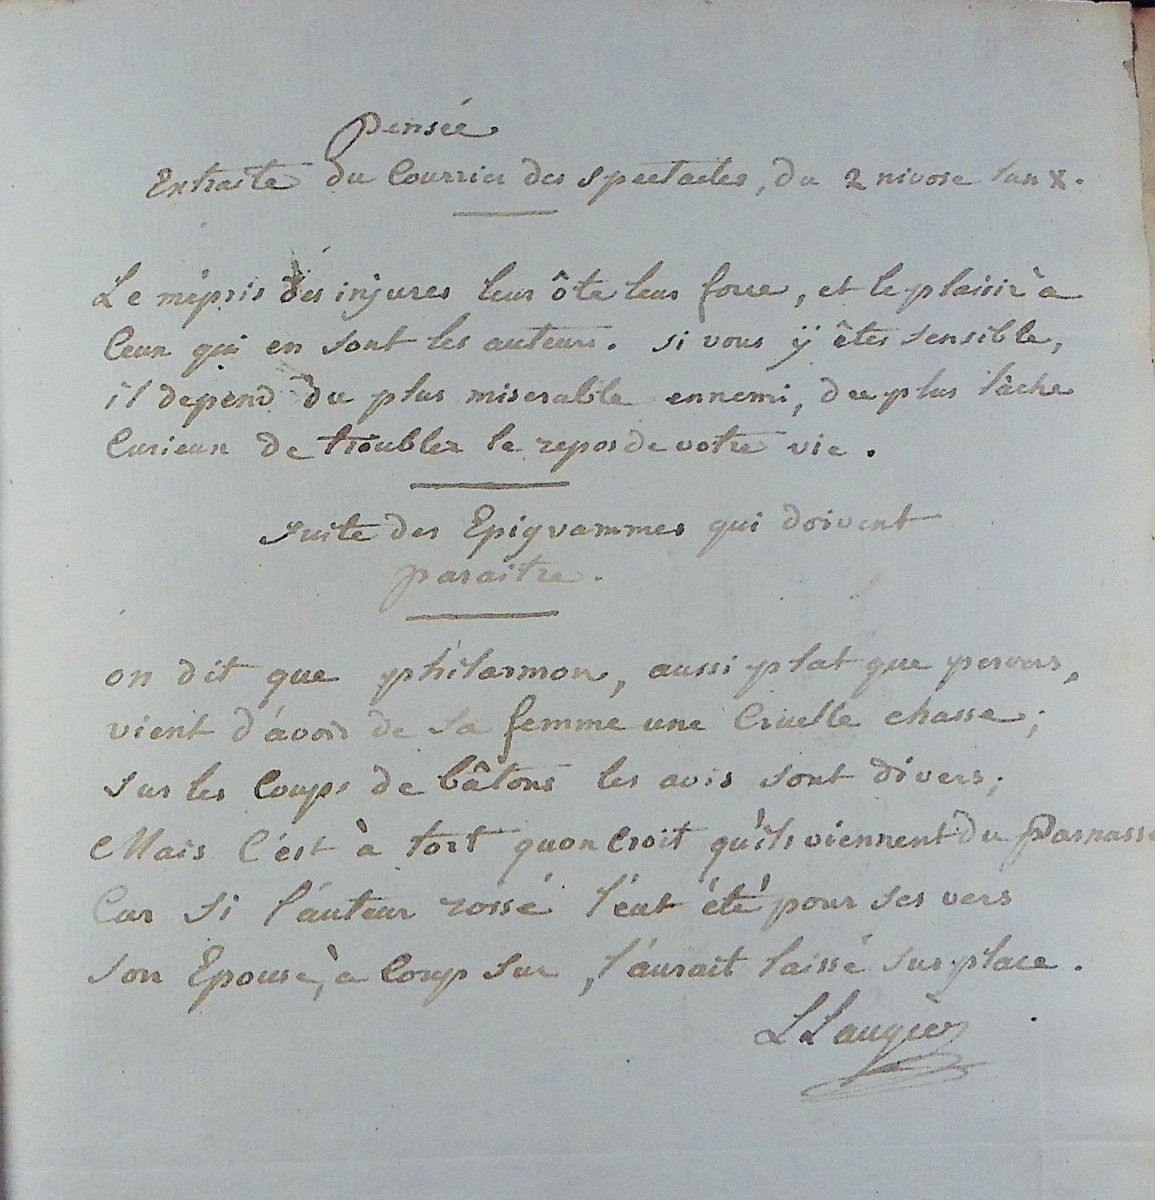 Pensée
Extraite du Courrier des spectacles, du 2 nivose l'an X.
Le mépris des injures leur ôte leur force, et le plaisir à
Ceux qui en sont les auteurs. si vous ÿ êtes sensible,
il depend du plus miserable ennemi, du plus lâche
Curieux de troubler le repos de votre vie.
suite des Epigrammes qui doivent
paraitre.
on dit que philarmon, aussi plat que pervers,
vient d'avoir de sa femme une Cruelle chasse;
sur les Coups de bâtons les avis sont divers;
Mais C'est à tort qu'on Croit qu'ils viennent du Parnasse
Car si l'auteur rossé l'eut été pour ses vers
son Epouse, à Coup sur, l'aurait laissé sur place.
L Laugier